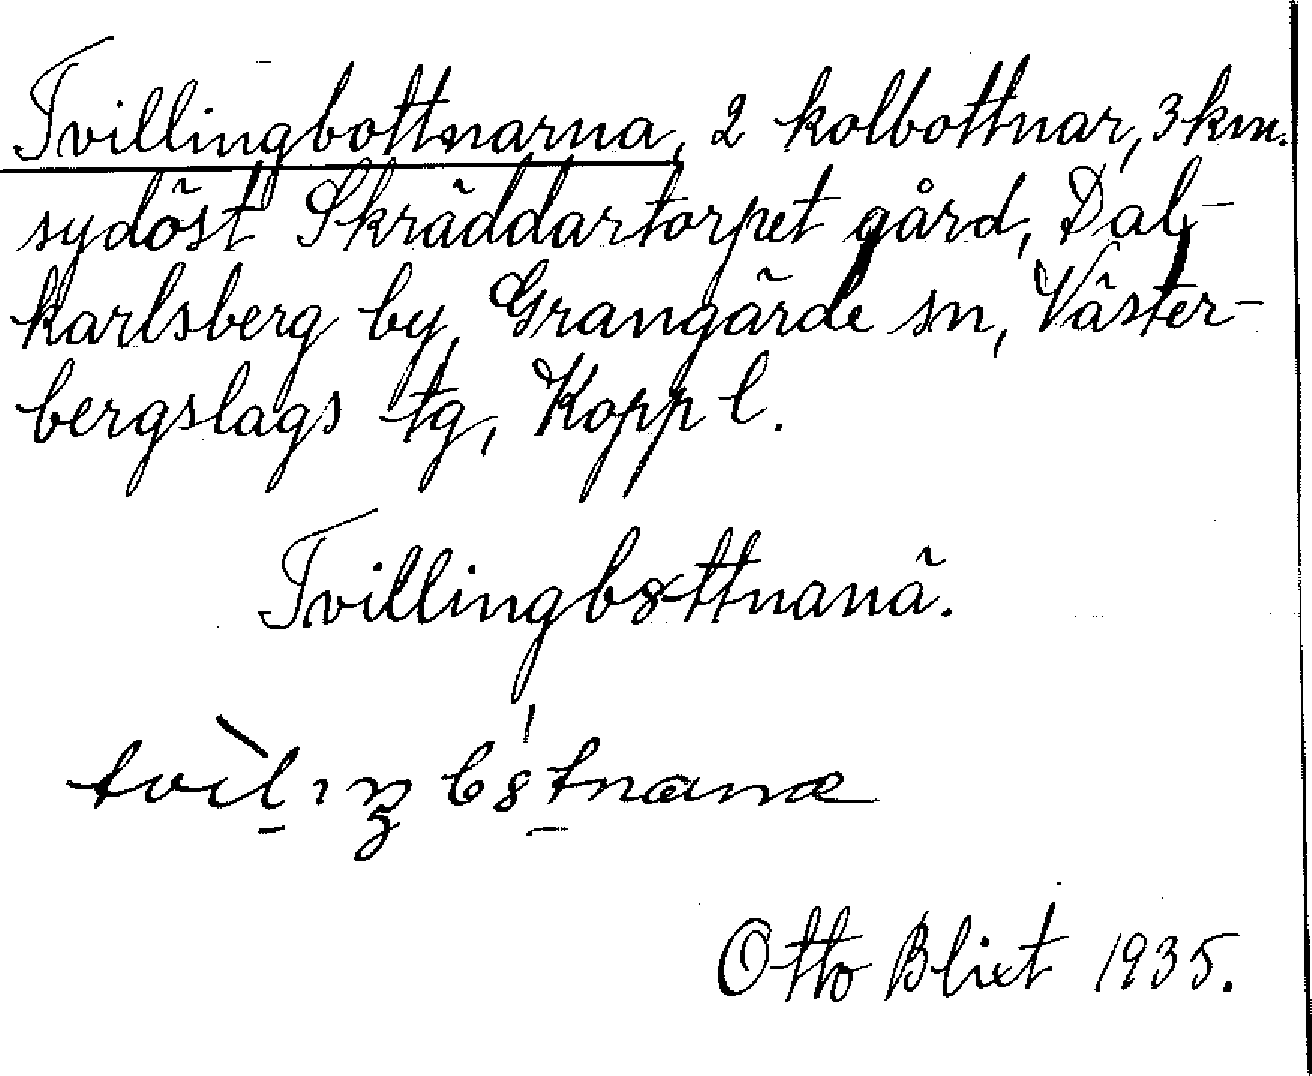 Tvillingbottnarna, 2 kolbottnar, 3 km.
sydöst Skräddartorpet gård, Dal-
karlsberg by, Grangärde sn, Väster-
bergslags tg, Kopp l.
Tvillingb8ttnanä.
Otto Blixt 1935.